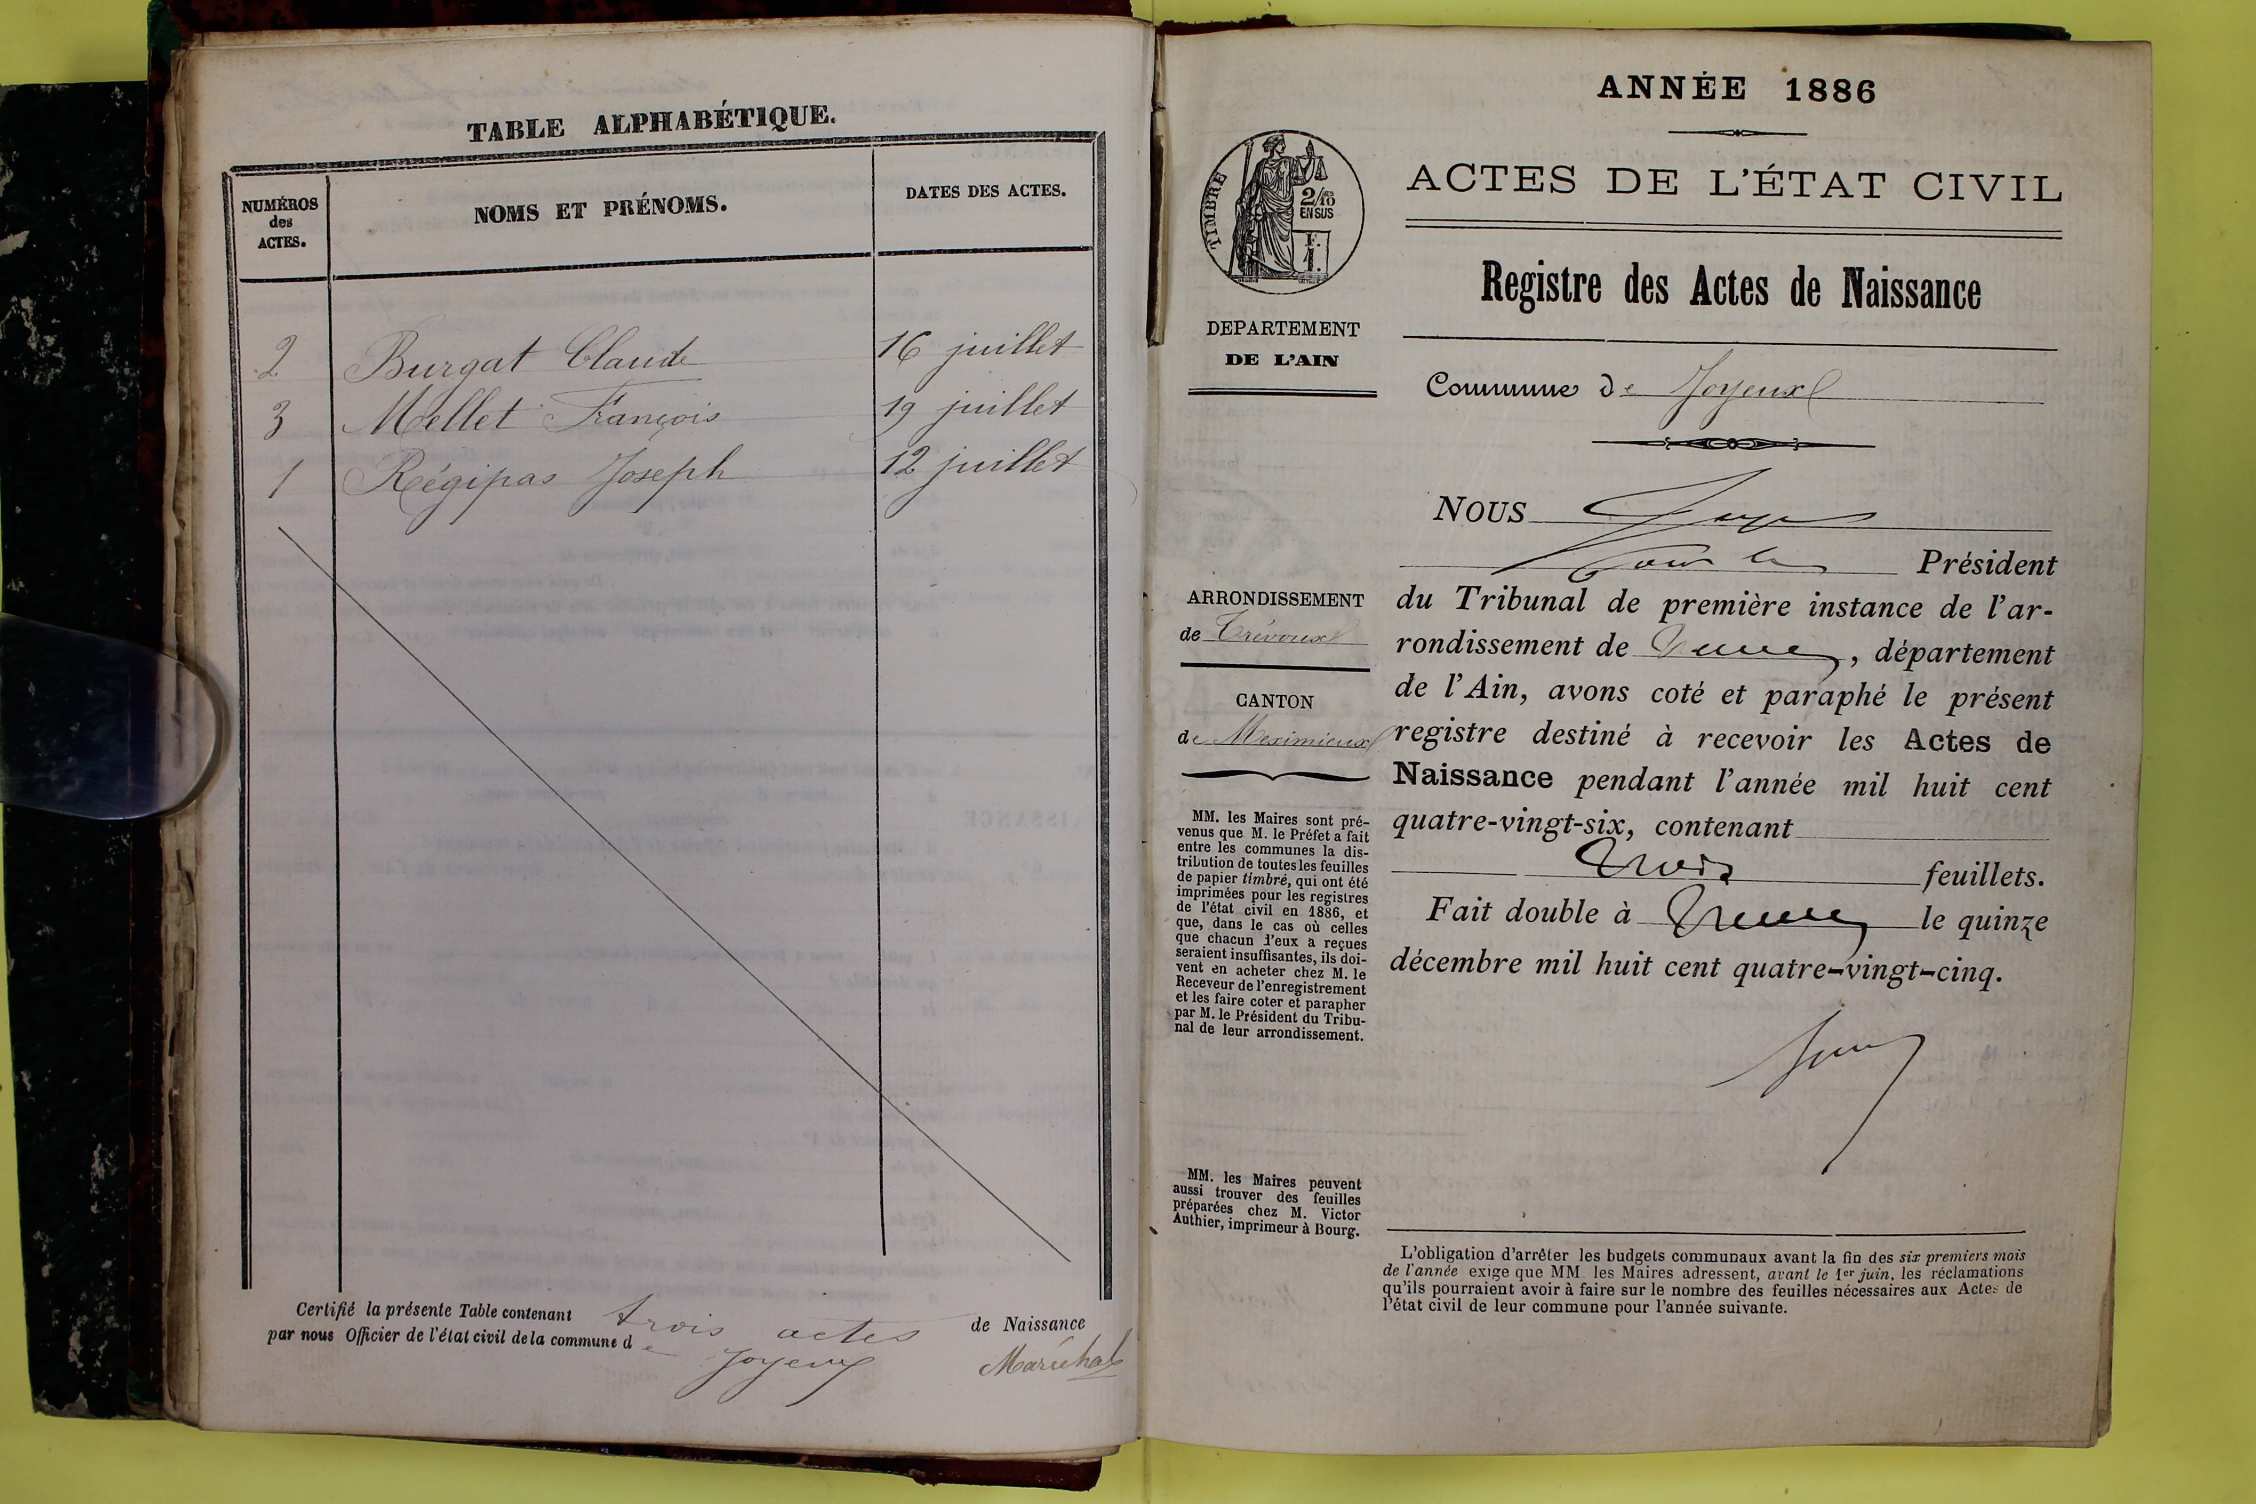 TABLE ALPHABÉTIQUE.
NUMÉROS
des
ACTES.
NOMS ET PRÉNOMS.
DATES DES ACTES.
2 Burgat Claude 16 juillet
3 Mellet François 19 juillet
1 Régipas Joseph 12 juillet
Certifié la présente Table contenant trois actes de Naissance
par nous Officier de l'état civil de la commune de Joyeux
Maréchal
ANNÉE 1886
ACTES DE L'ÉTAT CIVIL
Registre des Actes de Naissance
TIMBRE
2/10
EN SUS
F.
1.
DEPARTEMENT
DE L'AIN
Commune de Joyeux
NOUS
Président
du Tribunal de première instance de l'ar-
rondissement de , département
de l'Ain, avons coté et paraphé le présent
registre destiné à recevoir les Actes de
Naissance pendant l'année mil huit cent
quatre-vingt-six, contenant
trois feuillets.
Fait double à le quinze
décembre mil huit cent quatre-vingt-cinq.
ARRONDISSEMENT
de Trévoux
CANTON
de Meximieux
MM. les Maires sont pré-
venus que M. le Préfet a fait
entre les communes la dis-
tribution de toutes les feuilles
de papier timbré, qui ont été
imprimées pour les registres
de l'état civil en 1886, et
que, dans le cas où celles
que chacun d'eux a reçues
seraient insuffisantes, ils doi-
vent en acheter chez M. le
Receveur de l'enregistrement
et les faire coter et parapher
par M. le Président du Tribu-
nal de leur arrondissement.
MM. les Maires peuvent
aussi trouver des feuilles
préparées chez M. Victor
Authier, imprimeur à Bourg.
L'obligation d'arrêter les budgets communaux avant la fin des six premiers mois
de l'année exige que MM. les Maires adressent, avant le 1er juin, les réclamations
qu'ils pourraient avoir à faire sur le nombre des feuilles nécessaires aux Actes de
l'état civil de leur commune pour l'année suivante.